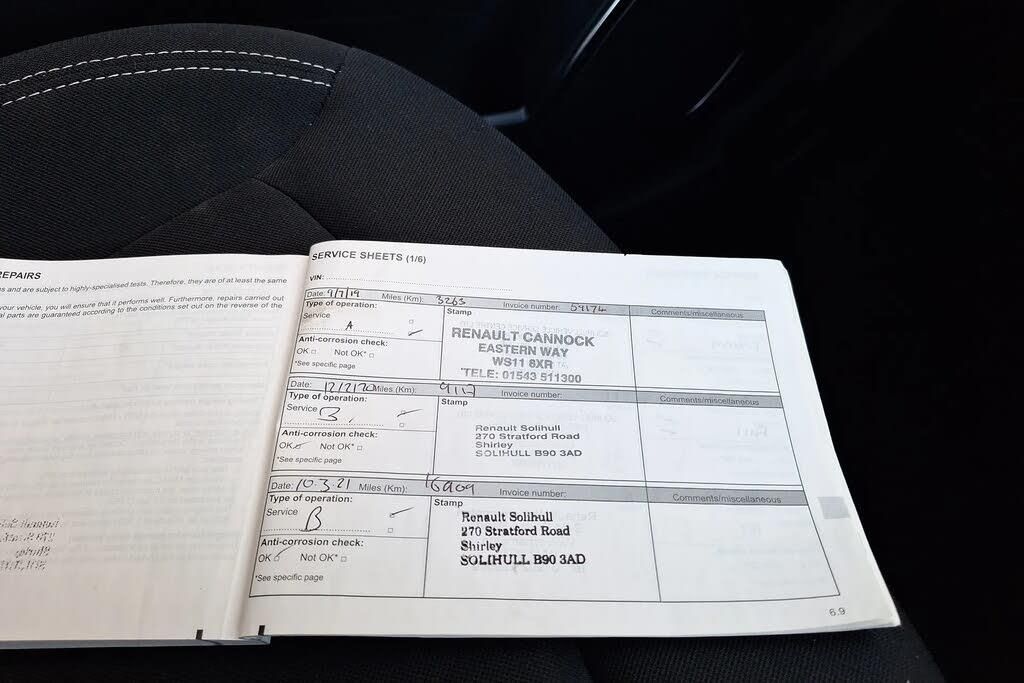 REPAIRS
ns and are subject to highly-specialised tests. Therefore, they are of at least the same
your vehicle, you will ensure that it performs well. Furthermore, repairs carried out
al parts are guaranteed according to the conditions set out on the reverse of the
SERVICE SHEETS (1/6)
VIN:
Date: 9/7/19 Miles (Km): 3265 Invoice number: 59174 Comments/miscellaneous
Type of operation:
Service
A
Anti-corrosion check:
OK Not OK*
*See specific page
Stamp
RENAULT CANNOCK
EASTERN WAY
WS11 8XR
TELE: 01543 511300
Date: 12/2/20 Miles (Km): 9117 Invoice number: Comments/miscellaneous
Type of operation:
Service B
Anti-corrosion check:
OK Not OK*
*See specific page
Stamp
Renault Solihull
270 Stratford Road
Shirley
SOLIHULL B90 3AD
Date: 10.3.21 Miles (Km): 16909 Invoice number: Comments/miscellaneous
Type of operation:
Service B
Anti-corrosion check:
OK Not OK*
*See specific page
Stamp
Renault Solihull
270 Stratford Road
Shirley
SOLIHULL B90 3AD
6.9